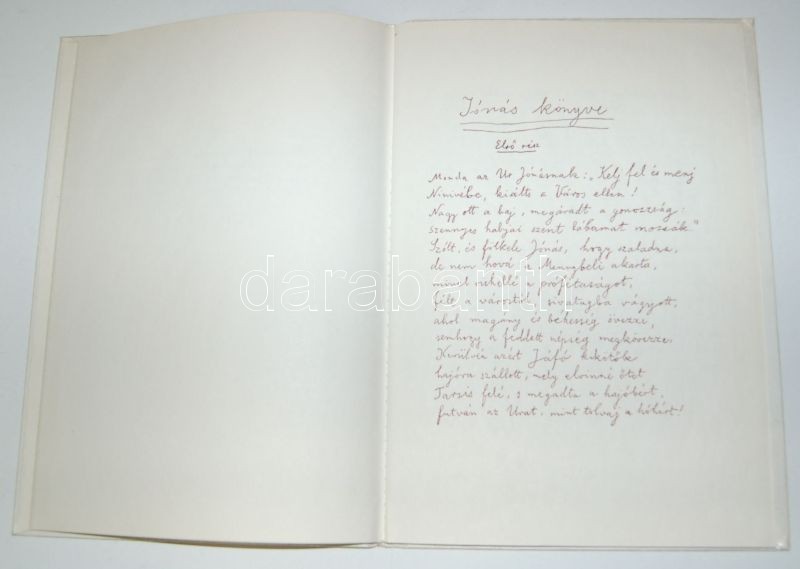 Jónás könyve
Első rész
Monda az Úr Jónásnak: „Kelj fel és menj
Ninivébe, kiálts a Város ellen!
Nagy ott a baj, megáradt a gonoszság:
szennyes habjai szent lábamat mossák."
Szólt, és fölkele Jónás, hogy szaladna,
de nem hová a Mennybéli akarta,
mivel rühellé a prófétaságot,
félt a várostól, sivatagba vágyott,
ahol magány és békesség övezze,
semhogy a feddett népség megkövezze.
Kerülvén azért Jáfó kikötők
hajóra szállott, mely elvinné őtet
Tarsis felé, s megadta a hajóbért,
futván az Urat, mint tolvaj a hóhért!
darabanth